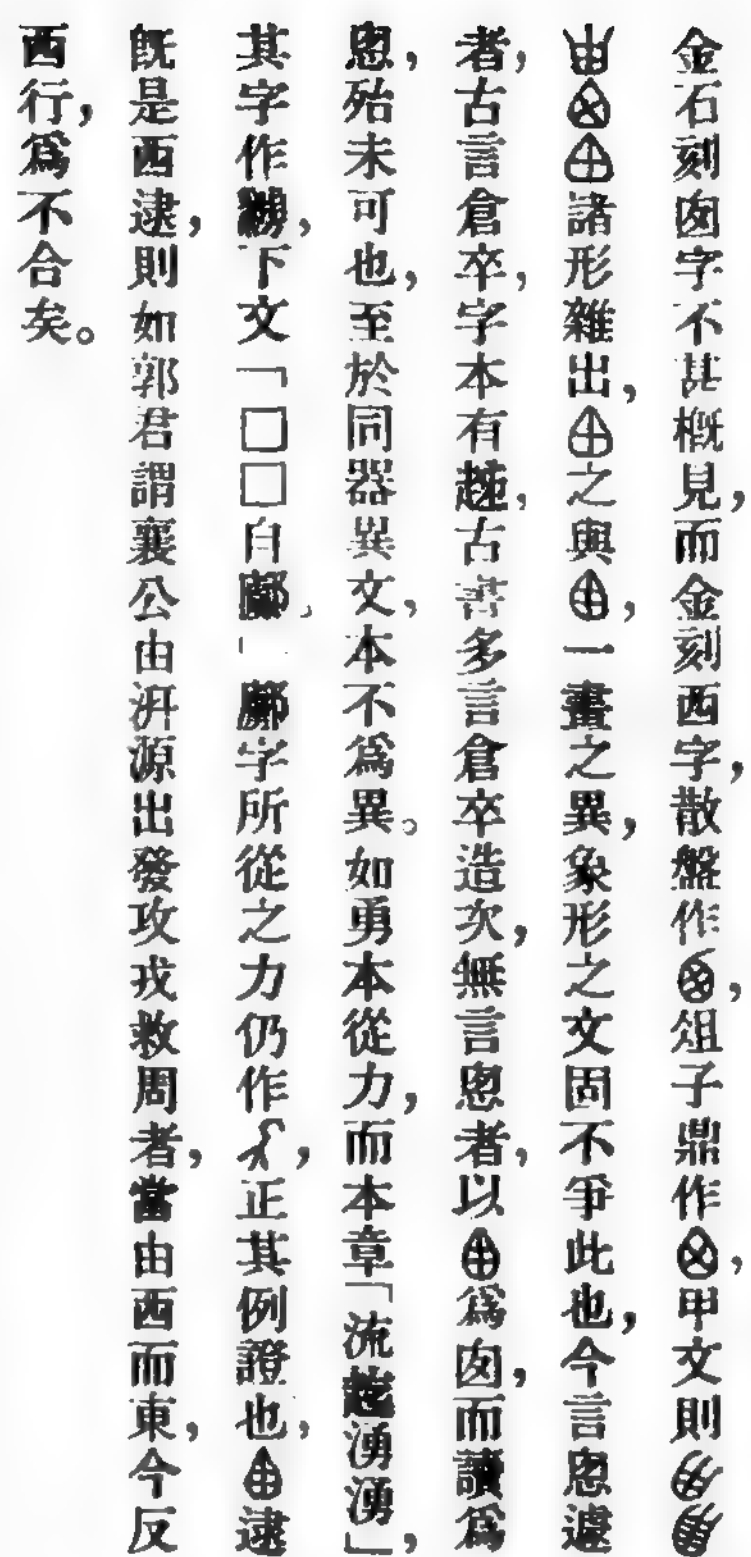 金石刻囪字不甚槪見，而金刻西字，散盤作，俎子鼎作，甲文則
諸形雜出，之與，一畫之異，象形之文固不爭此也，今言悤遽
者，古言倉卒，字本有，古書多言倉卒造次，無言悤者，以爲囪，而讀爲
悤，殆未可也，至於同器異文，本不爲異。如勇本從力，而本章「流湧湧」，
其字作，下文「□□自，」字所從之力仍作，正其例證也，逮
旣是西逮，則如郭君謂襄公由汧源出發攻戎救周者，當由西而東，今反
西行，爲不合矣。